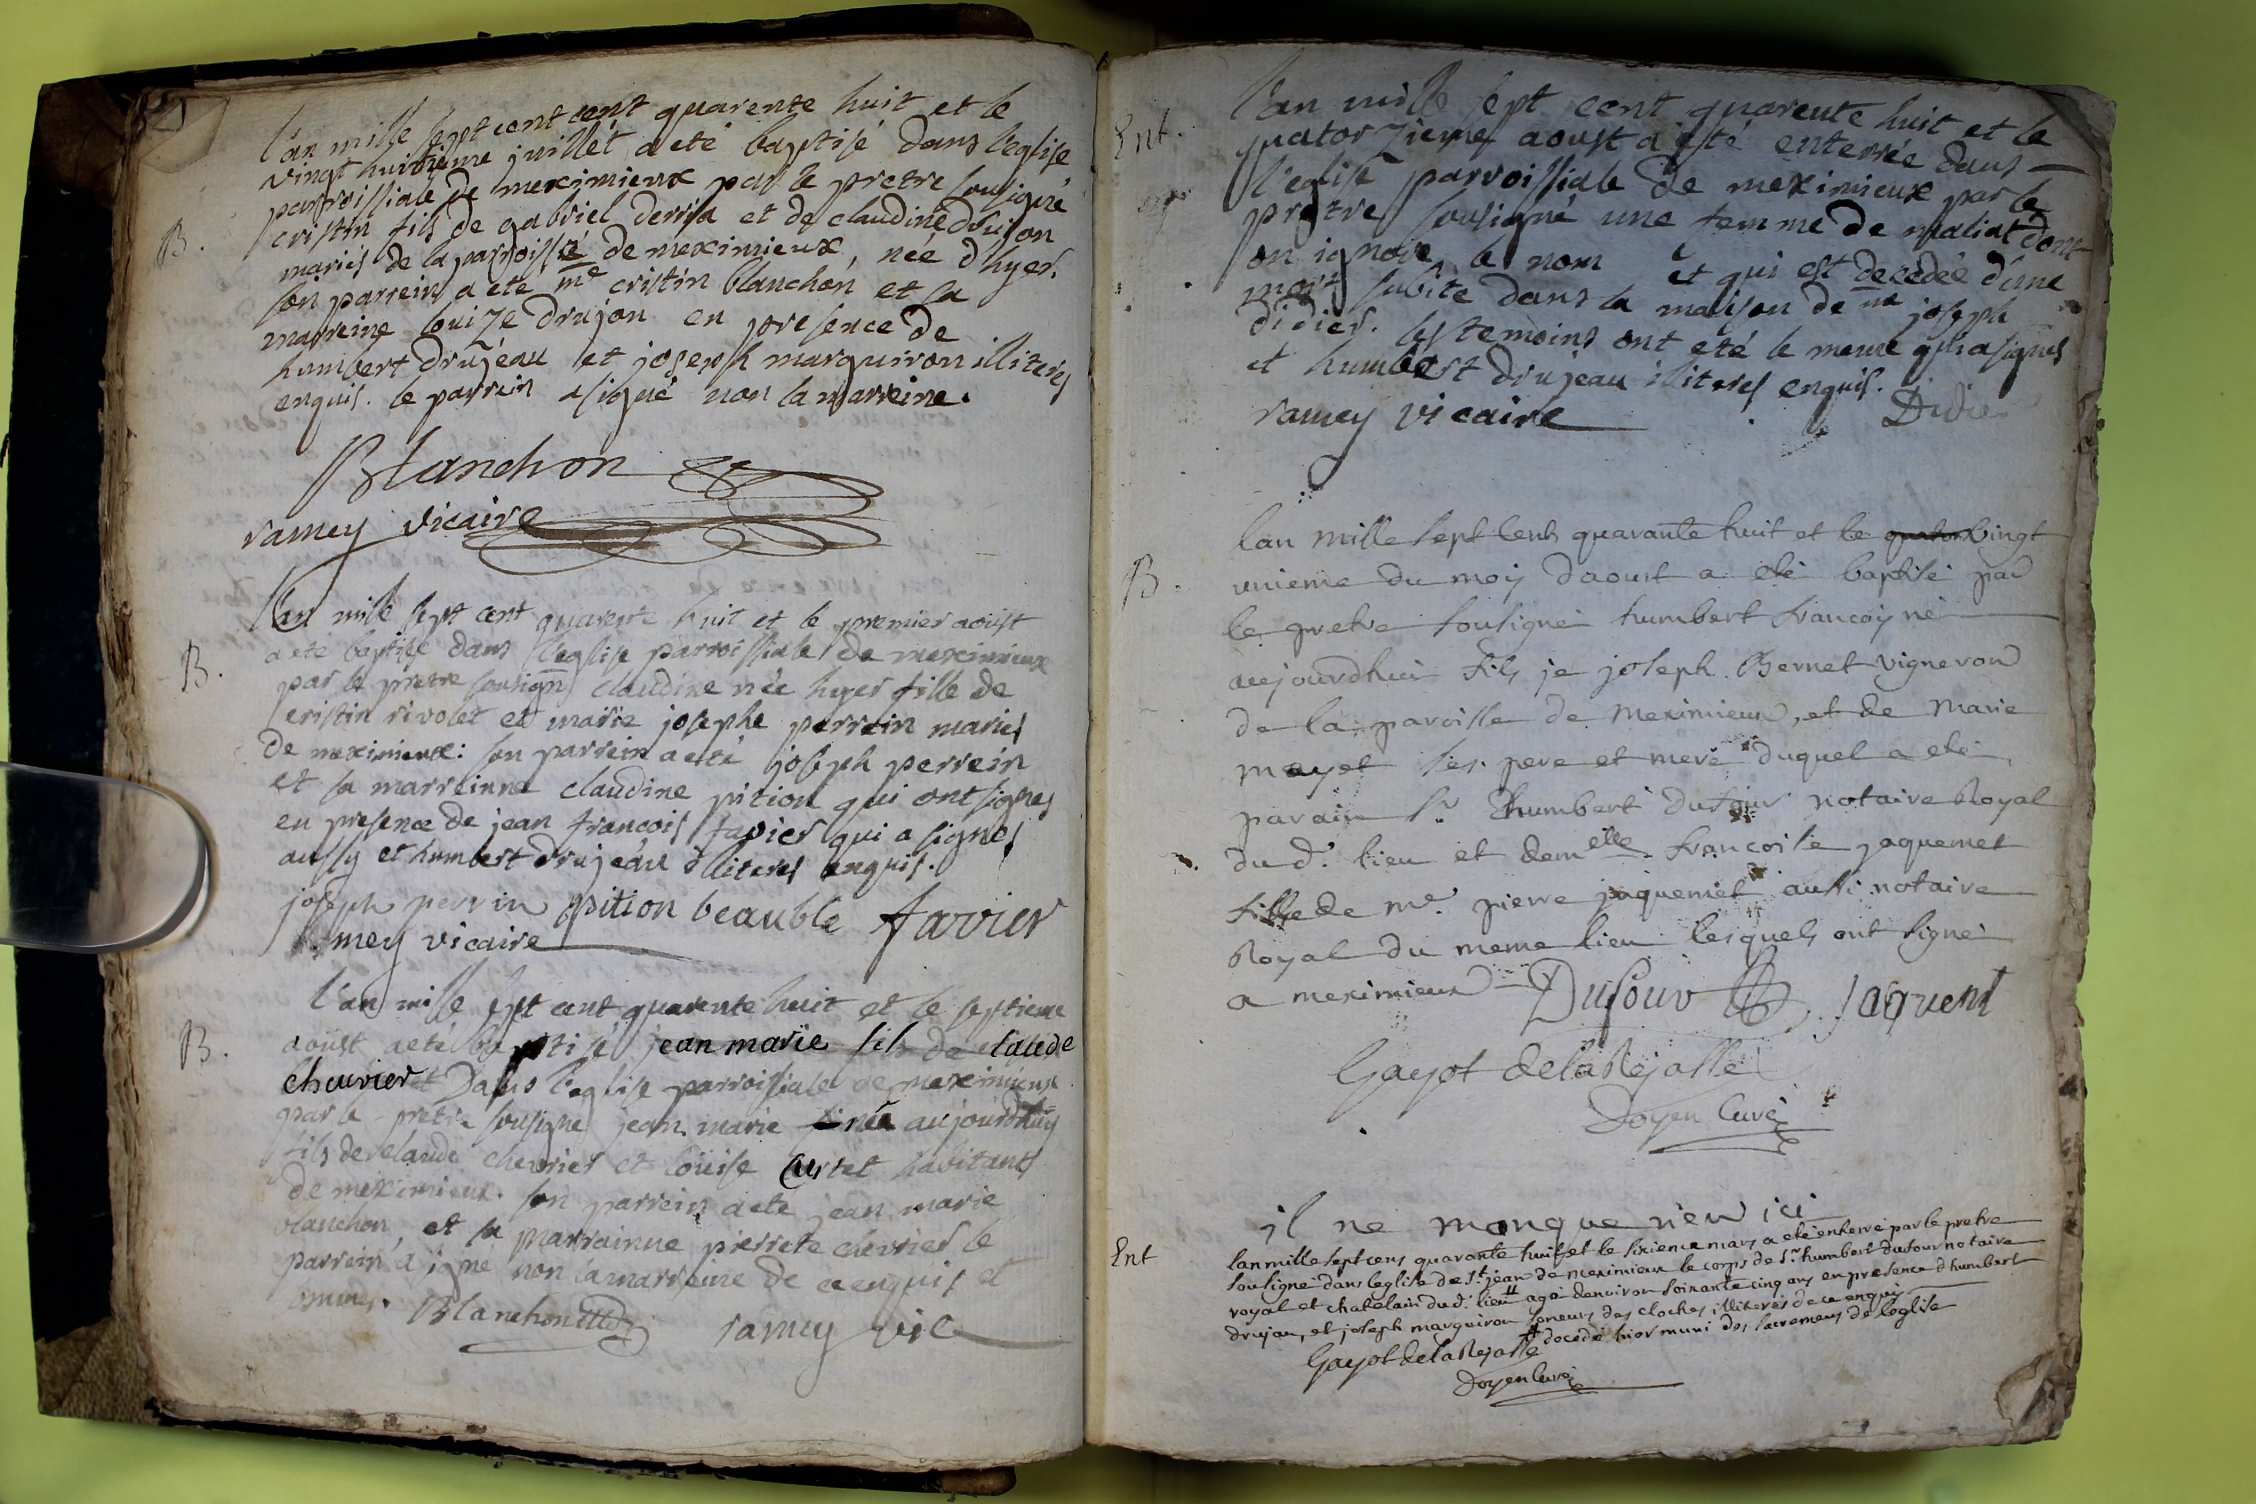 B.
l'an mille sept cent cent quarente huit et le
vingt huitieme juillet a eté baptisé dans l'eglise
parroissiale de meximieux par le pretre sousigné
cristin fils de gabriel derria et de claudine drujon
mariés de la parroisse de meximieux, née d'hyer.
son parrein a eté me cristin blanchon et sa
marreine louize drujon en presence de
humbert drujeau et joseph marguiron illiterés
enquis. le parrein a signé non la marreine.
Blanchon
ramey vicaire
B.
l'an mille sept cent quarente huit et le premier aoust
a eté baptisé dans l'eglise parroissiale de meximieux
par le pretre sousigné claudine née hyer fille de
cristin rivolet et marie josephe perrein mariés
de meximieux: son parrein a eté joseph perrein
et sa marreinne claudine pition qui ont signés
en presence de jean françois favier qui a signés
aussy et humbert drujeau illiterés enquis.
joseph perrin pition beauble favier
ramey vicaire
B.
l'an mille sept cent quarente huit et le septieme
aoust a eté baptisé jean marie fils de claude
cheuvrier et Dans l'eglise parroissiale de meximieux
par le pretre sousigné jean marie née aujourdhuy
fils de claude chevrier et louise Curtet habitants
de meximieux. son parrein a eté jean marie
blanchon, et sa marrainne pierrete chevrier le
parrein a signé non la marreine de ce enquis et
Blanchon
ramey vic
Ent.
l'an mille sept cent quarente huit et le
quatorzieme aoust a eté enterrée dans
l'eglise parroissiale de meximieux par le
pretre sousigné une femme de maliat dont
on ignore le nom et qui est decedée d'une
mort subite dans la maison de me joseph
didier. les temoins ont eté le meme qui a signés
et humbert drujeau illiterés enquis.
ramey vicaire Didier
B.
lan mille sept cens quarante huit et le quator vingt
unieme du moy daoust a eté baptisé par
le pretre sousigné humbert francoy né
aujourdhui fils je joseph Bernet vigneron
de la paroisse de meximieux, et de marie
mayet ses pere et mere duquel a eté
parain Sr. humbert dufour notaire Royal
du d. lieu et demelle francoise jaquemet
fille de me. pierre jaquemet aussi notaire
Royal du meme lieu lesquels ont signé
a meximieux Dufour jaquemt
Gayot de la Rejasse
Doyen Curé
il ne manque rien ici
Ent
lan mille sept cens quarante huit et le sixieme mars a eté enterré par le pretre
sousigné dans leglise de St. jean de meximieux le corps de Sr. humbert dufour notaire
royal et chatelain du d. lieu # agé denviron soixante cinq ans en presence dhumbert
drujau, et joseph marguiron soneurs des cloches illiterés de ce enquis
# decedé hier muni des sacremens de leglise
Gayot de la Rejasse
Doyen Curé